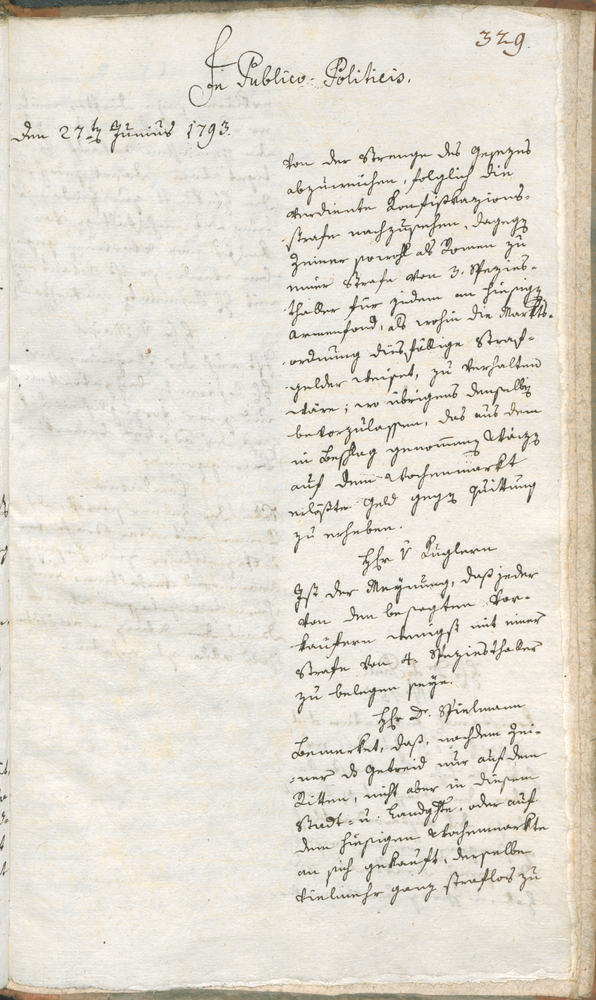 329.
In Publico-Politicis.
Den 27tn Junius 1793.
von der Strenge des Gesezes
abzuweichen, folglich die
verdiente Konfiskazions-
strafe nachzusehen, dagegen
Zeiner sowohl als Romen zu
einer Strafe von 3. Spezies-
thaller für jeden an hiesigen
Armenfond, als wohin die Markts-
ordnung diesfällige Straf-
gelder weiset, zu verhalten
wäre; wo übrigens denselben
bevorzulassen, das aus dem
in Beschlag genommen Waizen
auf dem Wochenmarkt
erlößte Geld gegen Quittung
zu erheben.
Hr v Kuglern
Ist der Meynung, daß jeder
von den besagten Vor-
käufern wenigst mit einer
Strafe von 4. Speziesthaller
zu belegen seye.
Hr Dr. Spielmann
Bemerket, daß, nachdem Zei-
ner das Getreid nur auf dem
Ritten, nicht aber in diesem
Stadt- u. Landghte, oder auf
dem hiesigen Wochenmarkte
an sich gekauft, derselbe
vielmehr ganz straflos zu